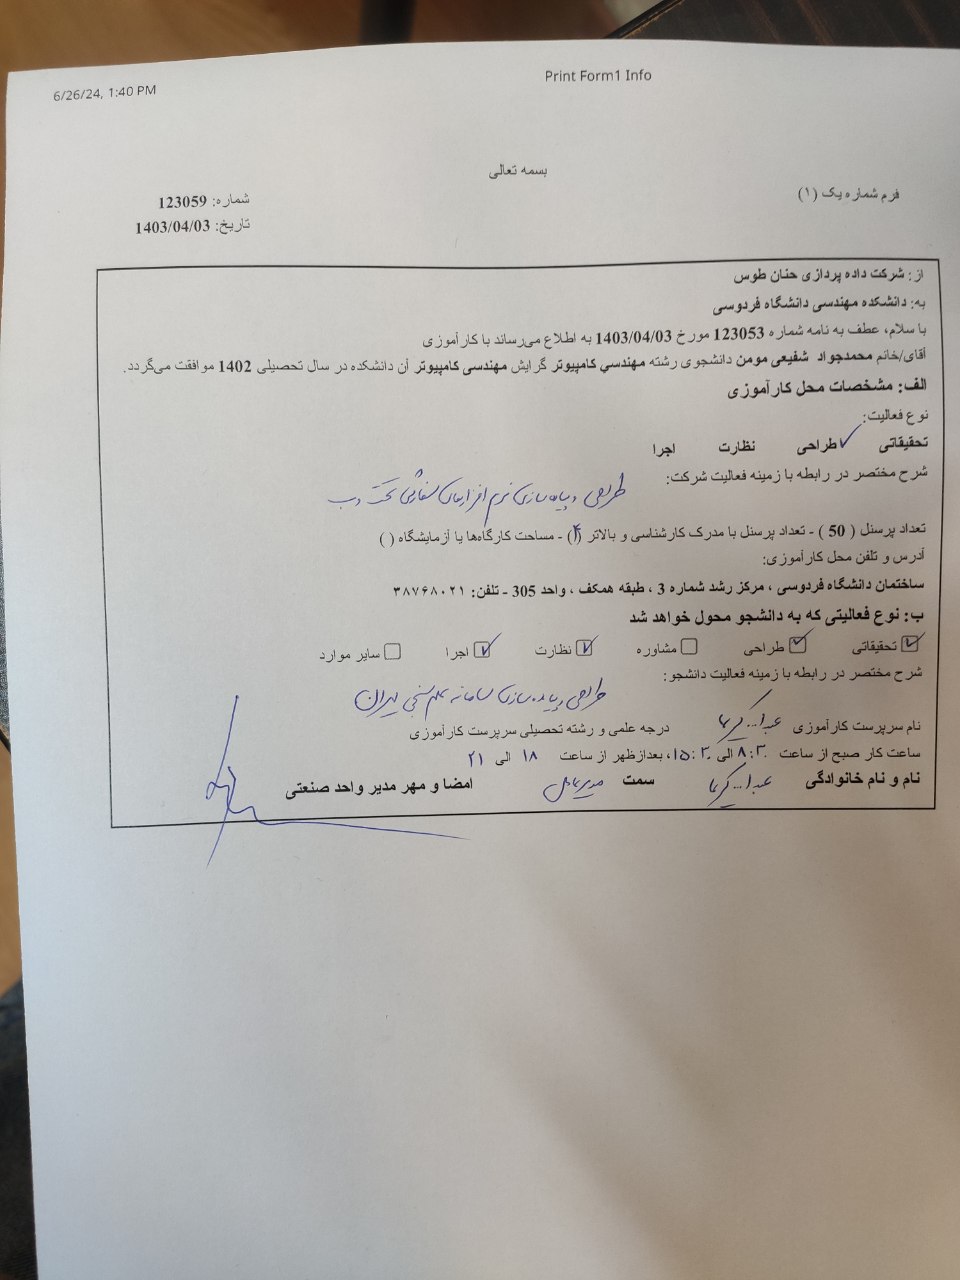 6/26/24, 1:40 PM
Print Form1 Info
بسمه تعالی
فرم شماره یک (۱)
شماره: 123059
تاریخ: 1403/04/03
از: شرکت داده پردازی حنان طوس
به: دانشکده مهندسی دانشگاه فردوسی
با سلام، عطف به نامه شماره 123053 مورخ 1403/04/03 به اطلاع می‌رساند با کارآموزی
آقای/خانم محمدجواد شفیعی مومن دانشجوی رشته مهندسي کامپیوتر گرایش مهندسی کامپیوتر آن دانشکده در سال تحصیلی 1402 موافقت می‌گردد.
الف: مشخصات محل کارآموزی
نوع فعالیت:
تحقیقاتی ✓طراحی نظارت اجرا
شرح مختصر در رابطه با زمینه فعالیت شرکت:
طراحی و پیاده سازی نرم افزارهای سفارشی تحت وب
تعداد پرسنل ( 50 ) - تعداد پرسنل با مدرک کارشناسی و بالاتر ( ) - مساحت کارگاه‌ها یا آزمایشگاه ( )
آدرس و تلفن محل کارآموزی:
ساختمان دانشگاه فردوسی ، مرکز رشد شماره 3 ، طبقه همکف ، واحد 305 - تلفن: ۳۸۷۶۸۰۲۱
ب: نوع فعالیتی که به دانشجو محول خواهد شد
تحقیقاتی طراحی مشاوره نظارت اجرا سایر موارد
شرح مختصر در رابطه با زمینه فعالیت دانشجو:
طراحی و پیاده سازی سامانه علم سنجی ایران
نام سرپرست کارآموزی عبدا... کریما درجه علمی و رشته تحصیلی سرپرست کارآموزی
ساعت کار صبح از ساعت ۸:۳۰ الی ۱۵:۳۰، بعدازظهر از ساعت ۱۸ الی ۲۱
نام و نام خانوادگی عبدا... کریما سمت مدیرعامل امضا و مهر مدیر واحد صنعتی